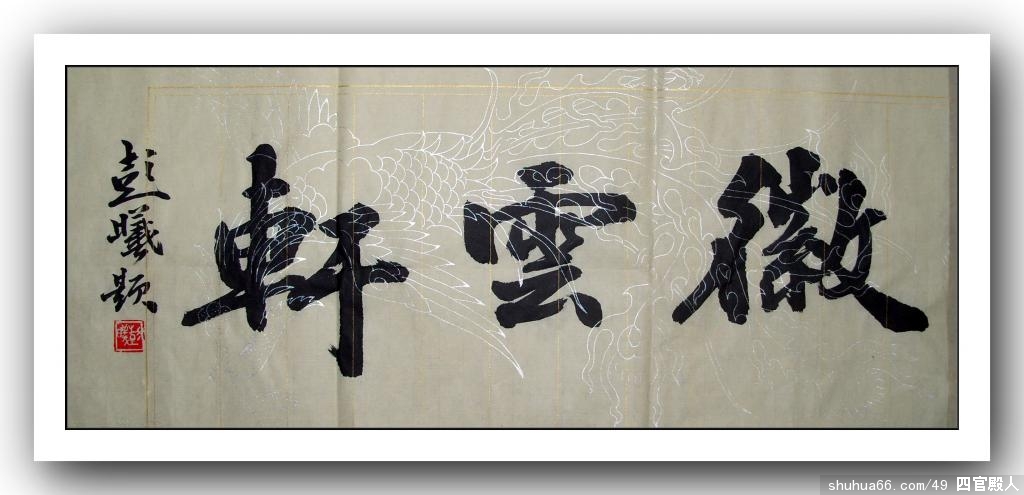 徽雲軒
彭曦题
shuhua66.com/49 四官殿人